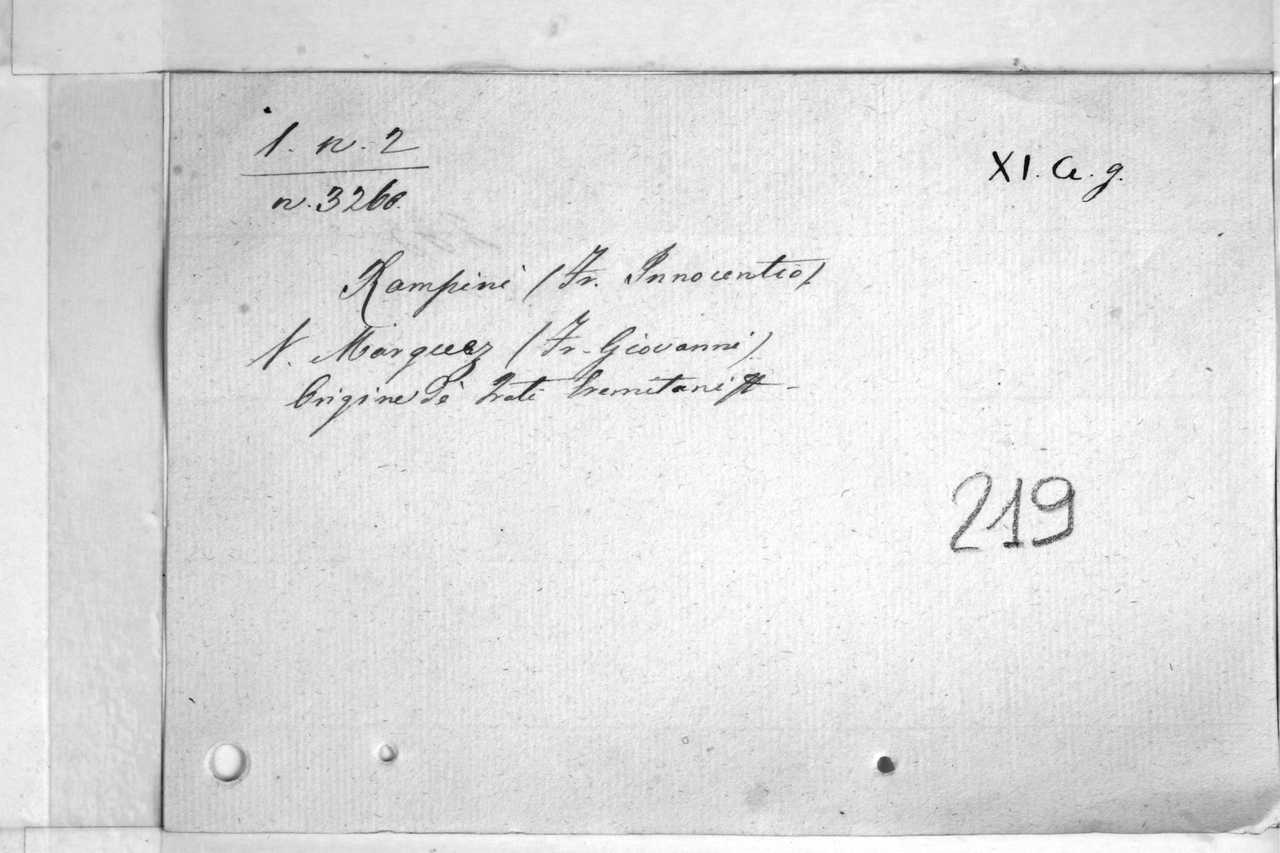 1. n. 2
n. 3260.
XI. a. g.
Rampini (Fr. Innocentio)
V. Marquez (Fr. Giovanni)
Origine dè Frati Eremitani
219